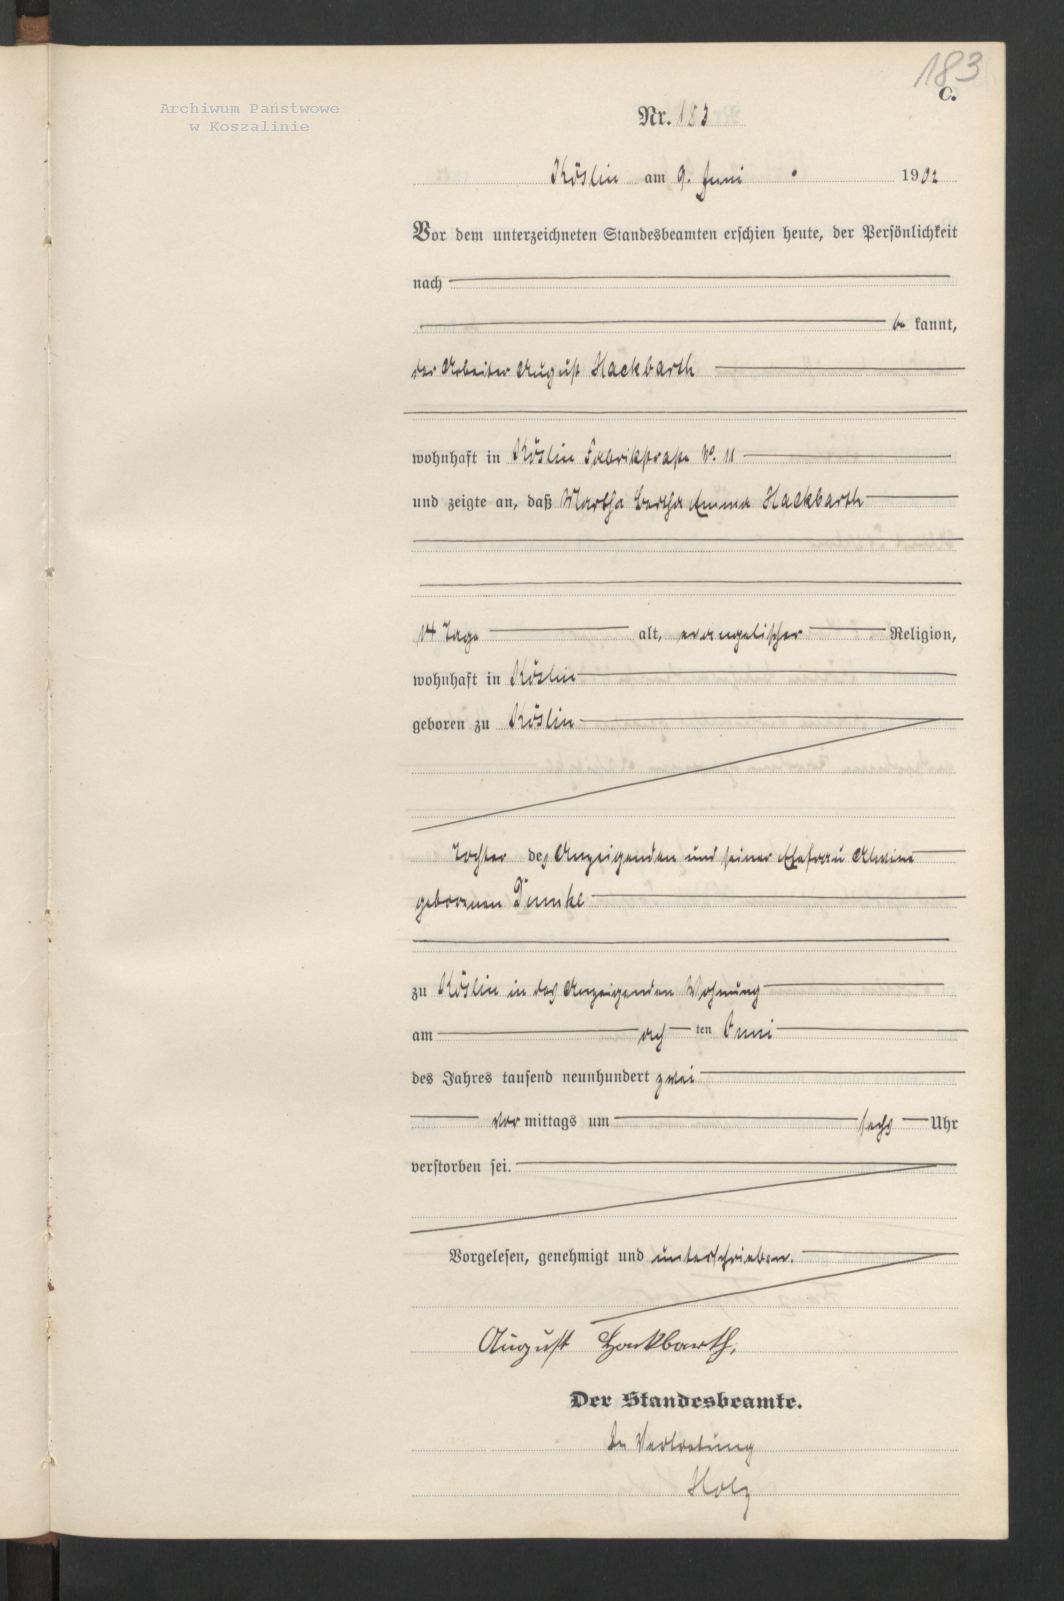 183
C.
Archiwum Państwowe
w Koszalinie
Nr. 183
Köslin am 9. Juni 1902
Vor dem unterzeichneten Standesbeamten erschien heute, der Persönlichkeit
nach
be kannt,
der Arbeiter August Hackbarth
wohnhaft in Köslin Fabrikstraße No. 11
und zeigte an, daß Martha Bertha Emma Hackbarth
14 Tage alt, evangelischer Religion,
wohnhaft in Köslin
geboren zu Köslin
Tochter des Anzeigenden und seiner Ehefrau Alwine
geborenen
zu Köslin in des Anzeigenden Wohnung
am ach ten Juni
des Jahres tausend neunhundert zwei
vor mittags um sechs Uhr
verstorben sei.
Vorgelesen, genehmigt und unterschrieben.
August Hackbarth.
Der Standesbeamte.
In Vertretung
Holz